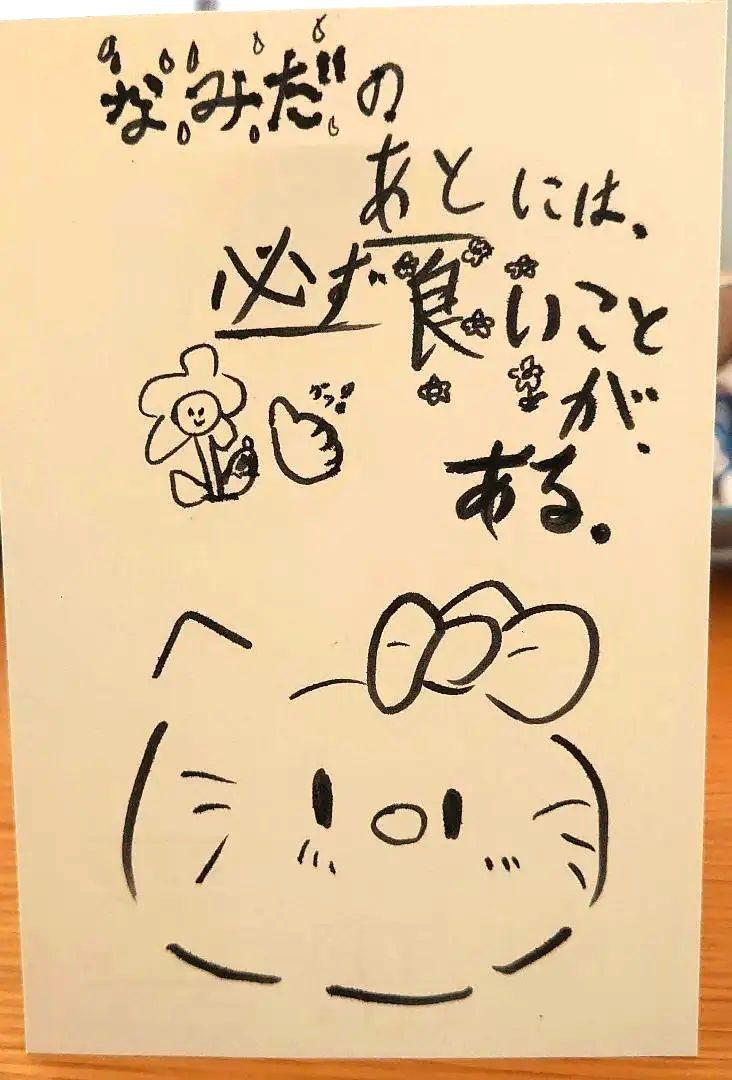 なみだの
あとには、
必ず良いこと
が、
ある。
グッ!!